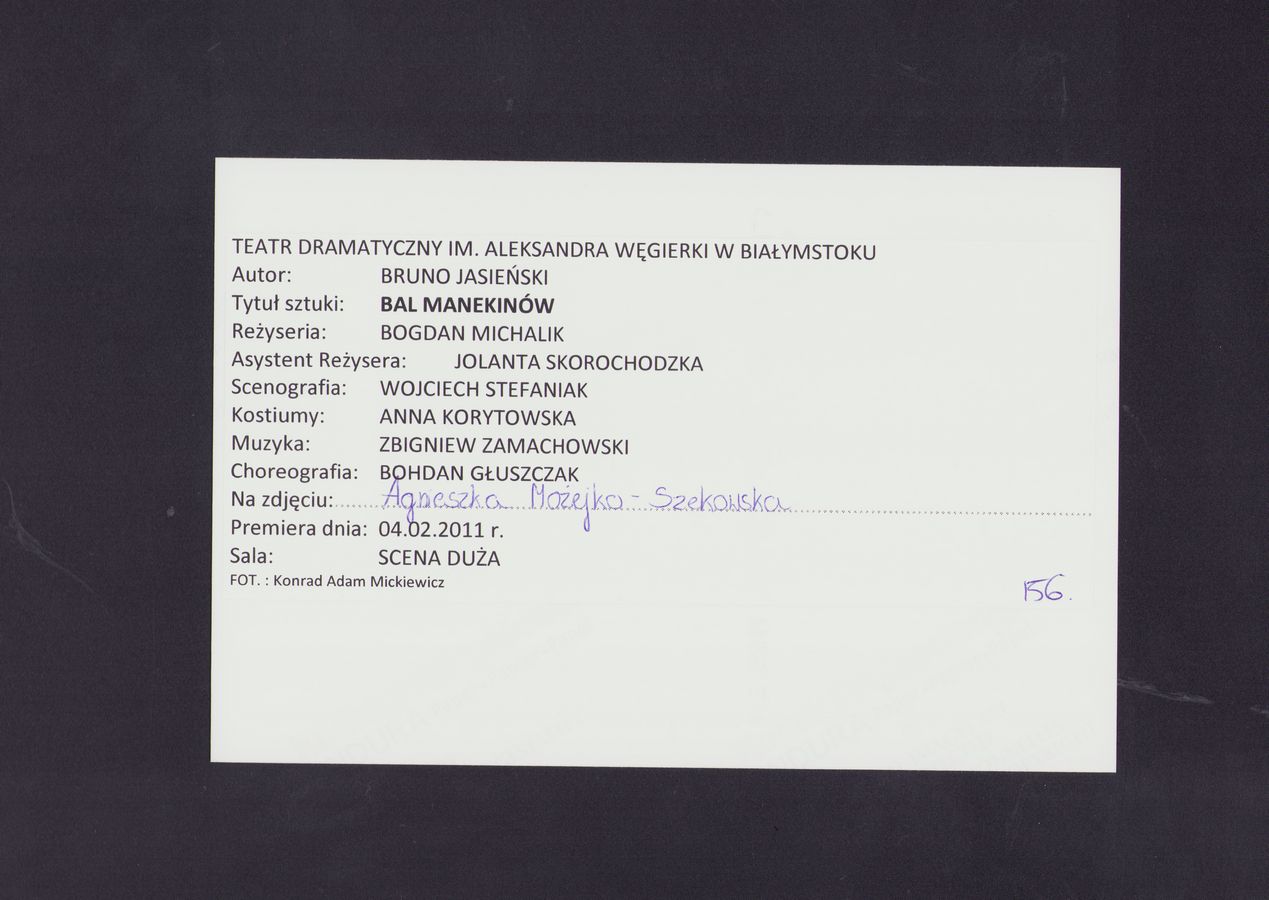 TEATR DRAMATYCZNY IM. ALEKSANDRA WĘGIERKI W BIAŁYMSTOKU
Autor: BRUNO JASIEŃSKI
Tytuł sztuki: BAL MANEKINÓW
Reżyseria: BOGDAN MICHALIK
Asystent Reżysera: JOLANTA SKOROCHODZKA
Scenografia: WOJCIECH STEFANIAK
Kostiumy: ANNA KORYTOWSKA
Muzyka: ZBIGNIEW ZAMACHOWSKI
Choreografia: BOHDAN GŁUSZCZAK
Na zdjęciu: Agnieszka Możejko - Szekowska
Premiera dnia: 04.02.2011 r.
Sala: SCENA DUŻA
FOT. : Konrad Adam Mickiewicz
156.